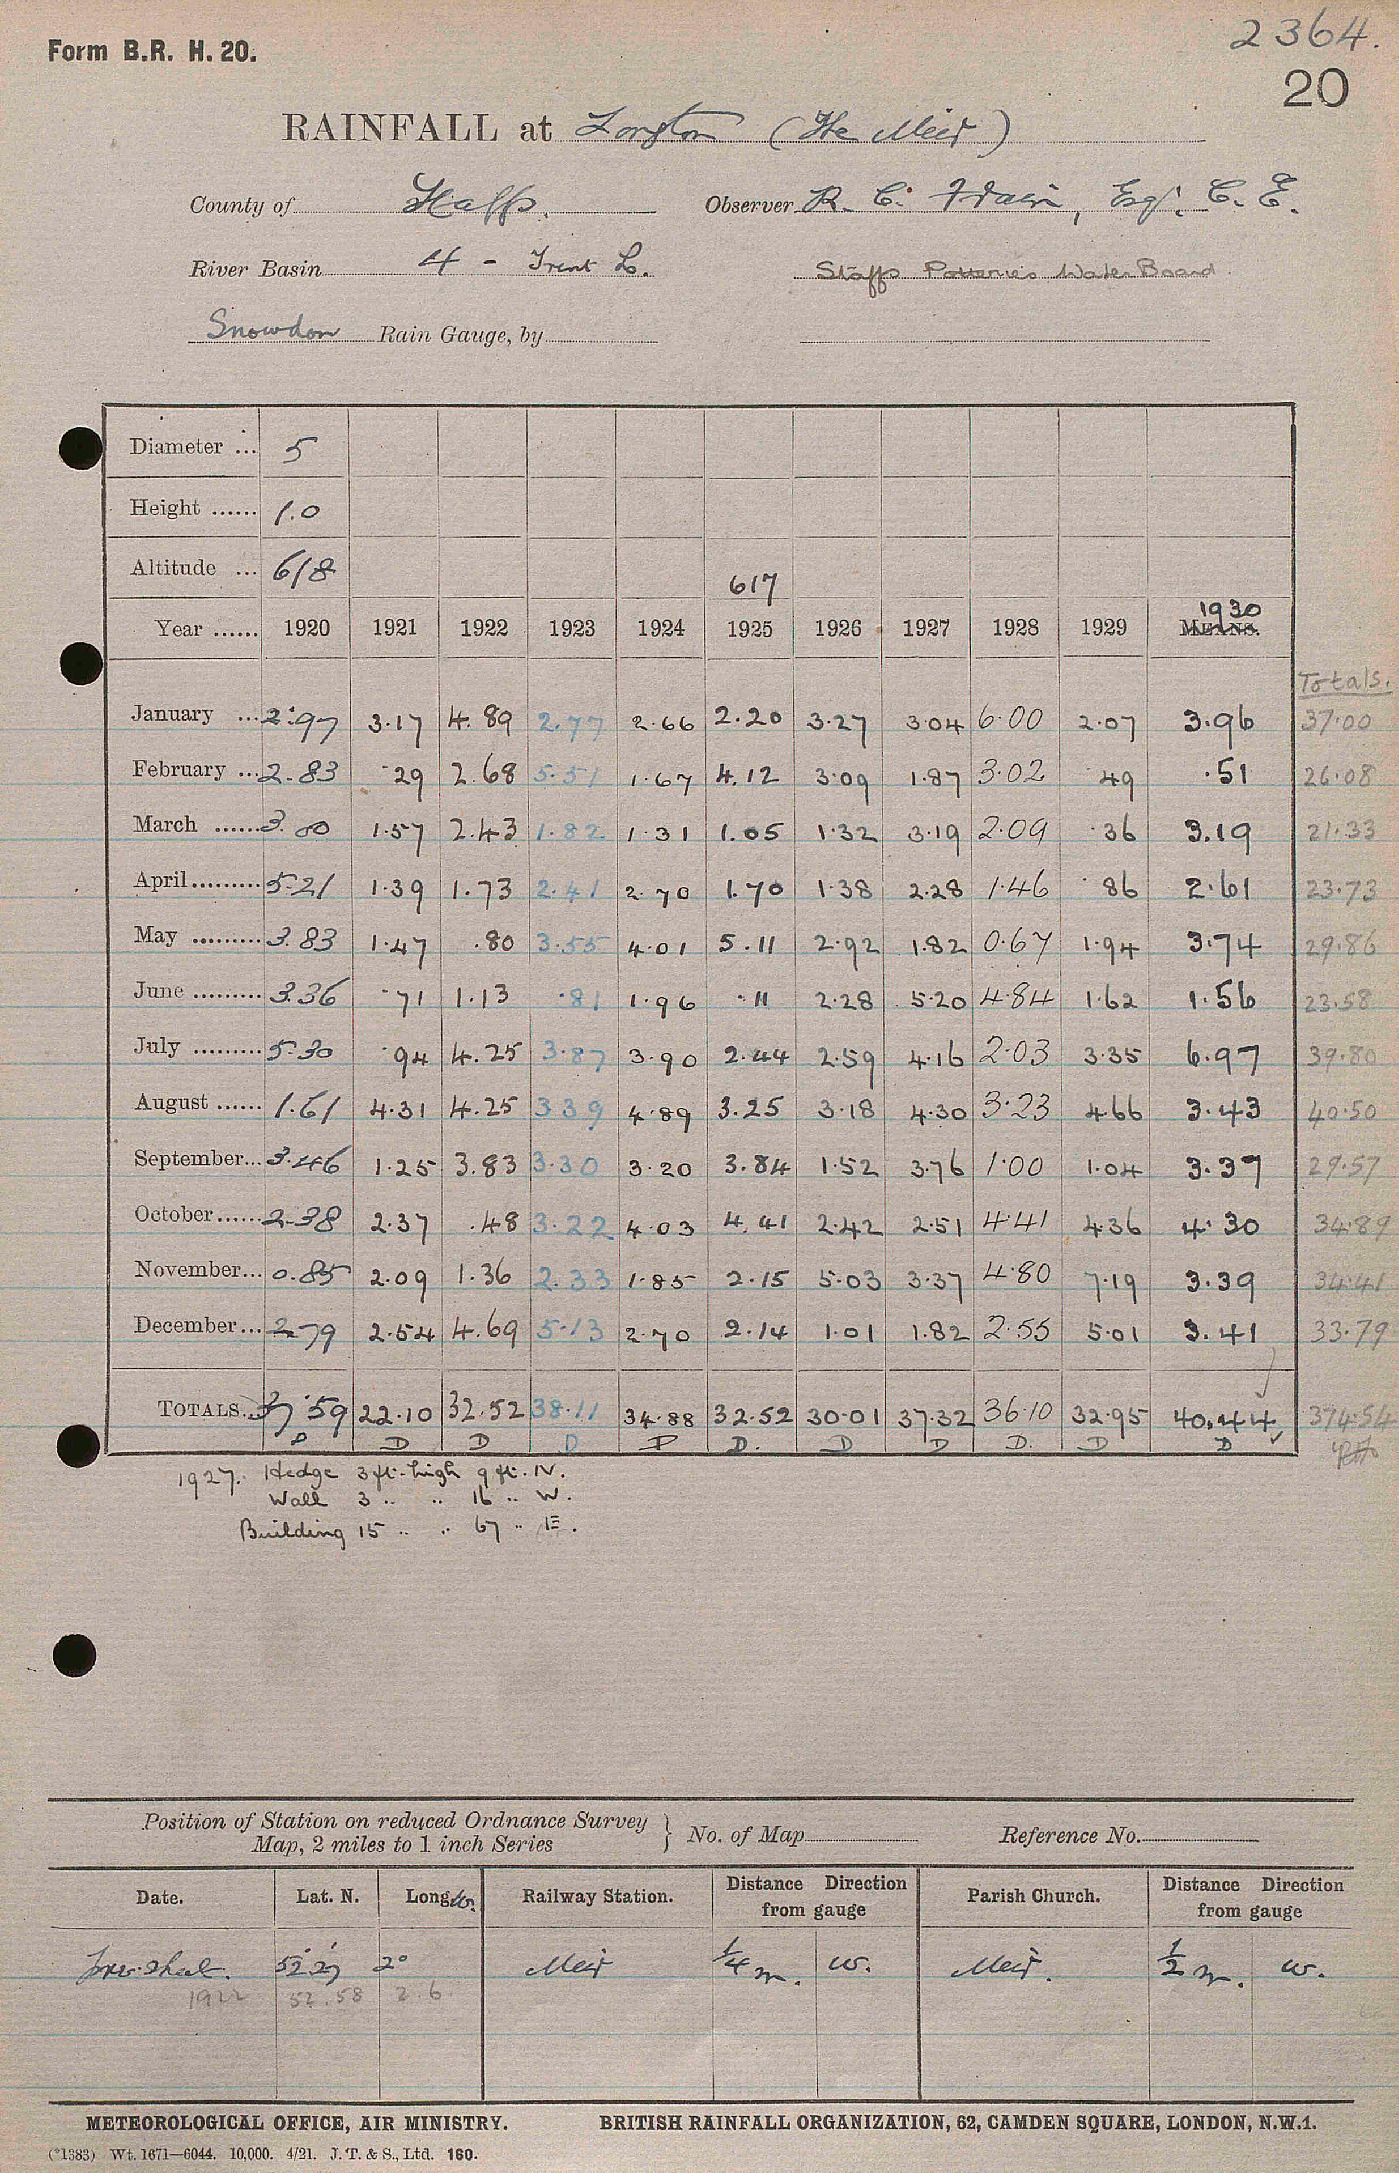 2364.
Form B.R. H. 20.
20
RAINFALL at Longton (The Meir)
County of Staffs. Observer R. C. Frain, Esq. C. E.
River Basin 4 - Trent L. Staffs Potteries Water Board
Snowdon Rain Gauge, by
Diameter ... 5
Height ...... 1.0
Altitude ... 618 617
Year ...... 1920 1921 1922 1923 1924 1925 1926 1927 1928 1929 MEANS. 1930
Totals.
January ... 2.97 3.17 4.89 2.77 2.66 2.20 3.27 3.04 6.00 2.07 3.96 37.00
February ... 2.83 .29 2.68 5.51 1.67 4.12 3.09 1.87 3.02 .49 .51 26.08
March ...... 3.00 1.57 2.43 1.82 1.31 1.05 1.32 3.19 2.09 .36 3.19 21.33
April ......... 5.21 1.39 1.73 2.41 2.70 1.70 1.38 2.28 1.46 .86 2.61 23.73
May ......... 3.83 1.47 .80 3.55 4.01 5.11 2.92 1.82 0.67 1.94 3.74 29.86
June ......... 3.36 .71 1.13 .81 1.96 .11 2.28 5.20 4.84 1.62 1.56 23.58
July ......... 5.30 .94 4.25 3.87 3.90 2.44 2.59 4.16 2.03 3.35 6.97 39.80
August ...... 1.61 4.31 4.25 339 4.89 3.25 3.18 4.30 3.23 4.66 3.43 40.50
September... 3.46 1.25 3.83 3.30 3.20 3.84 1.52 3.76 1.00 1.04 3.37 29.57
October...... 2.38 2.37 .48 3.22 4.03 4.41 2.42 2.51 4.41 4.36 4.30 34.89
November... 0.85 2.09 1.36 2.33 1.85 2.15 5.03 3.37 4.80 7.19 3.39 34.41
December... 2.79 2.54 4.69 5.13 2.70 2.14 1.01 1.82 2.55 5.01 3.41 33.79
TOTALS. 37.59 22.10 32.52 38.11 34.88 32.52 30.01 37.32 36.10 32.95 40.44 374.54
D D D D D D. D D D. D D
1927. Hedge 3 ft. high 9 ft. N.
Wall 3 " " 16 " W.
Building 15 " " 67 " E.
Position of Station on reduced Ordnance Survey Map, 2 miles to 1 inch Series } No. of Map Reference No.
Date. Lat. N. Long W. Railway Station. Distance Direction from gauge Parish Church. Distance Direction from gauge
Prev. sheet. 52° 59' 2° Meir 1/4 m. W. Meir. 1/2 m. W.
1922 52.58 2.6.
METEOROLOGICAL OFFICE, AIR MINISTRY. BRITISH RAINFALL ORGANIZATION, 62, CAMDEN SQUARE, LONDON, N.W.1.
(*1383) Wt. 1671—6044. 10,000. 4/21. J. T. & S., Ltd. 160.